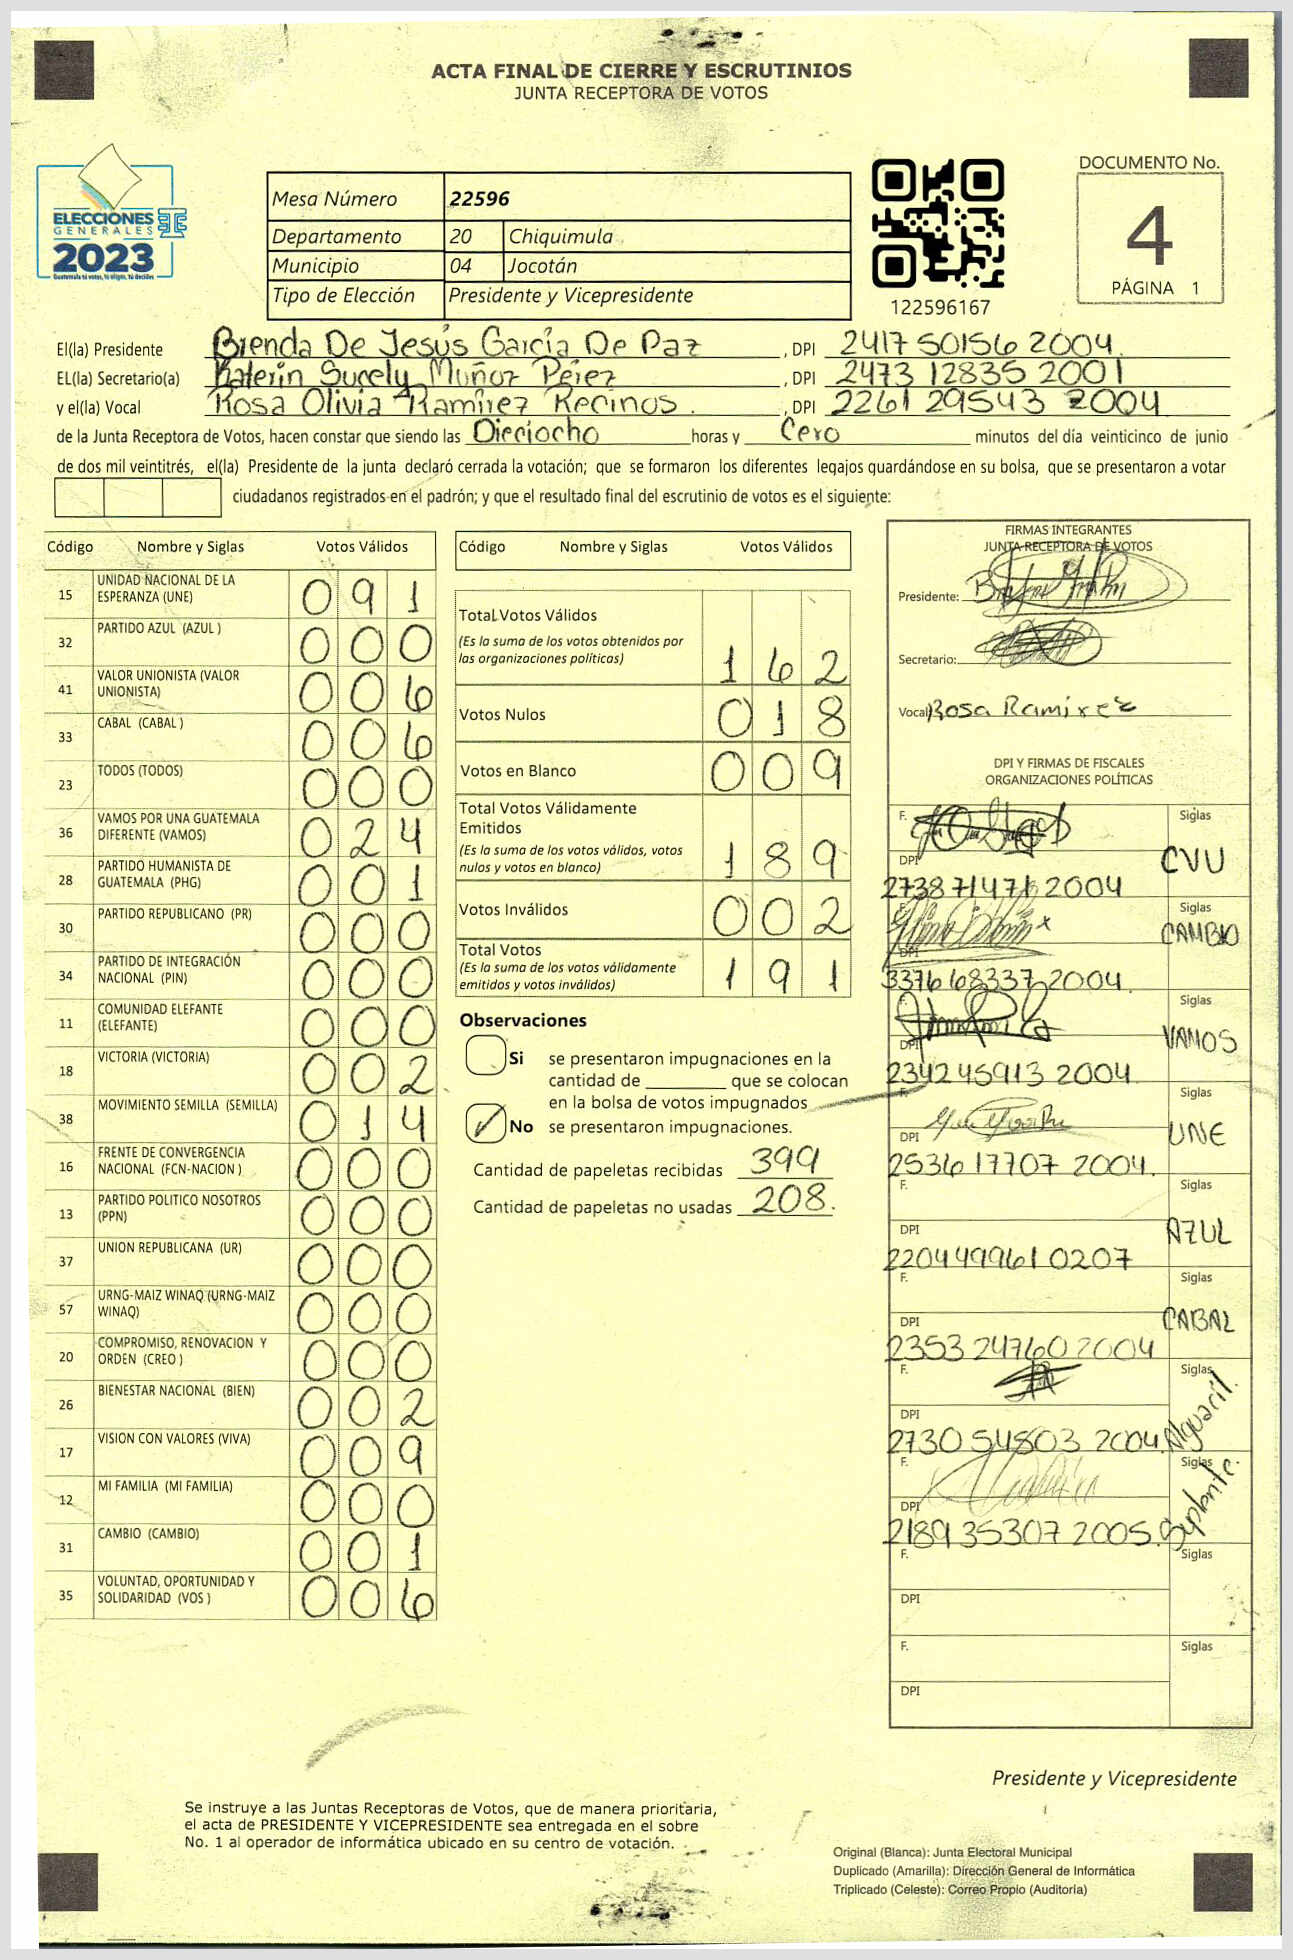 ACTA FINAL DE CIERRE Y ESCRUTINIOS
JUNTA RECEPTORA DE VOTOS
ELECCIONES
GENERALES
2023
Guatemala tú votas, tú eliges, tú decides
Mesa Número 22596
Departamento 20 Chiquimula
Municipio 04 Jocotán
Tipo de Elección Presidente y Vicepresidente
122596167
DOCUMENTO No.
4
PÁGINA 1
El(la) Presidente Brenda De Jesús García De Paz , DPI 2417 50156 2004.
EL(la) Secretario(a) Katerin Sucely Muñoz Pérez , DPI 2473 12835 2001
y el(la) Vocal Rosa Olivia Ramírez Recinos. , DPI 2261 29543 2004
de la Junta Receptora de Votos, hacen constar que siendo las Dieciocho horas y Cero minutos del día veinticinco de junio
de dos mil veintitrés, el(la) Presidente de la junta declaró cerrada la votación; que se formaron los diferentes legajos guardándose en su bolsa, que se presentaron a votar
ciudadanos registrados en el padrón; y que el resultado final del escrutinio de votos es el siguiente:
Código Nombre y Siglas Votos Válidos
15 UNIDAD NACIONAL DE LA ESPERANZA (UNE) 0 9 1
32 PARTIDO AZUL (AZUL ) 0 0 0
41 VALOR UNIONISTA (VALOR UNIONISTA) 0 0 6
33 CABAL (CABAL ) 0 0 6
23 TODOS (TODOS) 0 0 0
36 VAMOS POR UNA GUATEMALA DIFERENTE (VAMOS) 0 2 4
28 PARTIDO HUMANISTA DE GUATEMALA (PHG) 0 0 1
30 PARTIDO REPUBLICANO (PR) 0 0 0
34 PARTIDO DE INTEGRACIÓN NACIONAL (PIN) 0 0 0
11 COMUNIDAD ELEFANTE (ELEFANTE) 0 0 0
18 VICTORIA (VICTORIA) 0 0 2
38 MOVIMIENTO SEMILLA (SEMILLA) 0 1 4
16 FRENTE DE CONVERGENCIA NACIONAL (FCN-NACION ) 0 0 0
13 PARTIDO POLITICO NOSOTROS (PPN) 0 0 0
37 UNION REPUBLICANA (UR) 0 0 0
57 URNG-MAIZ WINAQ (URNG-MAIZ WINAQ) 0 0 0
20 COMPROMISO, RENOVACION Y ORDEN (CREO ) 0 0 0
26 BIENESTAR NACIONAL (BIEN) 0 0 2
17 VISION CON VALORES (VIVA) 0 0 9
12 MI FAMILIA (MI FAMILIA) 0 0 0
31 CAMBIO (CAMBIO) 0 0 1
35 VOLUNTAD, OPORTUNIDAD Y SOLIDARIDAD (VOS ) 0 0 6
Código Nombre y Siglas Votos Válidos
Total Votos Válidos
(Es la suma de los votos obtenidos por
las organizaciones políticas) 1 6 2
Votos Nulos 0 1 8
Votos en Blanco 0 0 9
Total Votos Válidamente
Emitidos
(Es la suma de los votos válidos, votos
nulos y votos en blanco) 1 8 9
Votos Inválidos 0 0 2
Total Votos
(Es la suma de los votos válidamente
emitidos y votos inválidos) 1 9 1
Observaciones
Si se presentaron impugnaciones en la
cantidad de ________ que se colocan
en la bolsa de votos impugnados
No se presentaron impugnaciones.
Cantidad de papeletas recibidas 399
Cantidad de papeletas no usadas 208.
FIRMAS INTEGRANTES
JUNTA RECEPTORA DE VOTOS
Presidente:
Secretario:
Vocal Rosa Ramírez
DPI Y FIRMAS DE FISCALES
ORGANIZACIONES POLÍTICAS
F. Siglas
DPI CVU
2738 71471 2004
F. Siglas
DPI CAMBIO
3376 68337 2004.
F. Siglas
DPI VAMOS
2342 45913 2004
F. Siglas
DPI UNE
2536 17707 2004.
F. Siglas
DPI AZUL
2204 49961 0207
F. Siglas
DPI CABAL
2353 24760 2004
F. Siglas
DPI Alguacil.
2730 54803 2004.
F. Siglas
DPI Suplente.
2189 35307 2005.
F. Siglas
DPI
F. Siglas
DPI
Presidente y Vicepresidente
Se instruye a las Juntas Receptoras de Votos, que de manera prioritaria,
el acta de PRESIDENTE Y VICEPRESIDENTE sea entregada en el sobre
No. 1 al operador de informática ubicado en su centro de votación.
Original (Blanca): Junta Electoral Municipal
Duplicado (Amarilla): Dirección General de Informática
Triplicado (Celeste): Correo Propio (Auditoría)